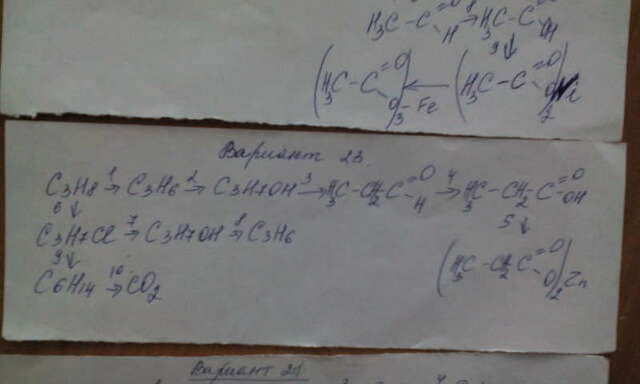 H₃C – C =O H 8→ H₃C – C =O OH
9↓
(H₃C – C =O O)₃ – Fe ← (H₃C – C =O O)₂ Ni
Вариант 23.
C₃H₈ 1→ C₃H₆ 2→ C₃H₇OH 3→ H₃C – CH₂ C =O H 4→ H₃C – CH₂ C =O OH
6↓ 5↓
C₃H₇Cl 7→ C₃H₇OH 8→ C₃H₆ (H₃C – CH₂ C =O O)₂ Zn
9↓
C₆H₁₄ 10→ CO₂
Вариант 21